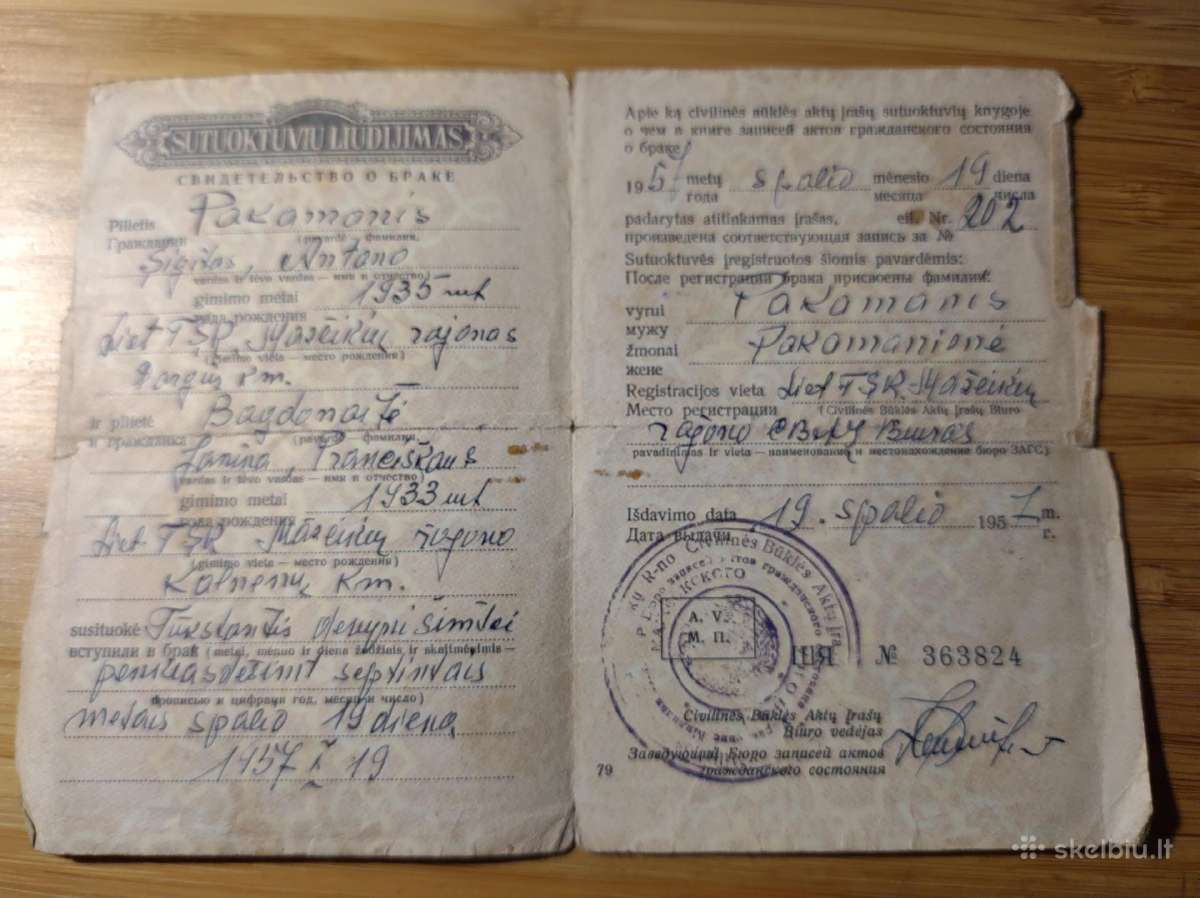 SUTUOKTUVIŲ LIUDIJIMAS
СВИДЕТЕЛЬСТВО О БРАКЕ
Pilietis Pakamanis
Гражданин (pavardė — фамилия,
Antano
vardas ir tėvo vardas — имя и отчество)
gimimo metai 1935 mt
года рождения
Liet TSR Mažeikių rajonas
(gimimo vieta — место рождения)
km.
ir pilietė Bagdonaitė
и гражданка (pavardė — фамилия,
Janina, Pranciškaus
vardas ir tėvo vardas — имя и отчество)
gimimo metai 1933 mt
года рождения
Liet TSR Mažeikių rajono
(gimimo vieta — место рождения)
Kalnėnų km.
susituokė Tūkstantis devyni šimtai
вступили в брак (metai, mėnuo ir diena žodžiais ir skaitmenimis —
penkiasdešimt septintais
прописью и цифрами год, месяц и число)
metais spalio 19 dieną
1957 X 19
Apie ką civilinės būklės aktų įrašų sutuoktuvių knygoje
о чем в книге записей актов гражданского состояния
о браке
1957 metų spalio mėnesio 19 diena
года месяца числа
padarytas atitinkamas įrašas, eil. Nr. 202
произведена соответствующая запись за №
Sutuoktuvės įregistruotos šiomis pavardėmis:
После регистрации брака присвоены фамилии:
vyrui Pakamanis
мужу
žmonai Pakamanienė
жене
Registracijos vieta Liet TSR Mažeikių
Место регистрации (Civilinės Būklės Aktų Įrašų Biuro
rajono CBAĮ Biuras
pavadinimas ir vieta — наименование и местонахождение бюро ЗАГС)
Išdavimo data 19. spalio 1957 m.
Дата выдачи г.
R-no Civilinės Būklės Aktų Įra
A. V.
М. П.
ЦЯ № 363824
Civilinės Būklės Aktų Įrašų
Biuro vedėjas
Заведующий Бюро записей актов
гражданского состояния
79
skelbiu.lt